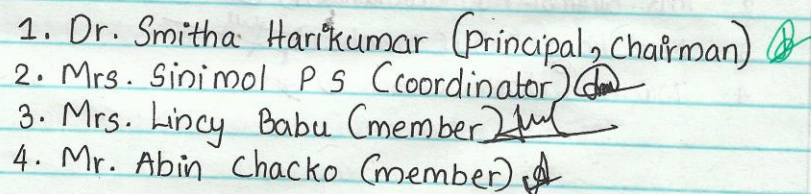 1. Dr. Smitha Harikumar (principal, chairman)
2. Mrs. Sinimol P S (coordinator)
3. Mrs. Lincy Babu (member)
4. Mr. Abin Chacko (member)